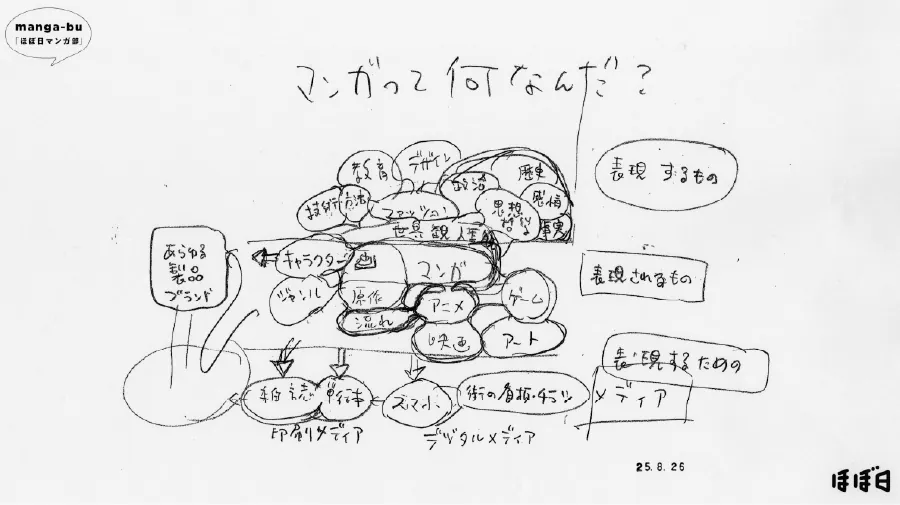 manga-bu
「ほぼ日マンガ部」
マンガって何なんだ？
教育
デザイン
政治
歴史
感情
技術
方法
ファッション
思想
事実
世界観
表現するもの
あらゆる
製品
ブランド
キャラクター
画
マンガ
表現されるもの
ジャンル
原作
アニメ
ゲーム
流れ
映画
アート
表現するための
メディア
単行本
スマホ
街の看板・チラシ
印刷メディア
デジタルメディア
25.8.26
ほぼ日